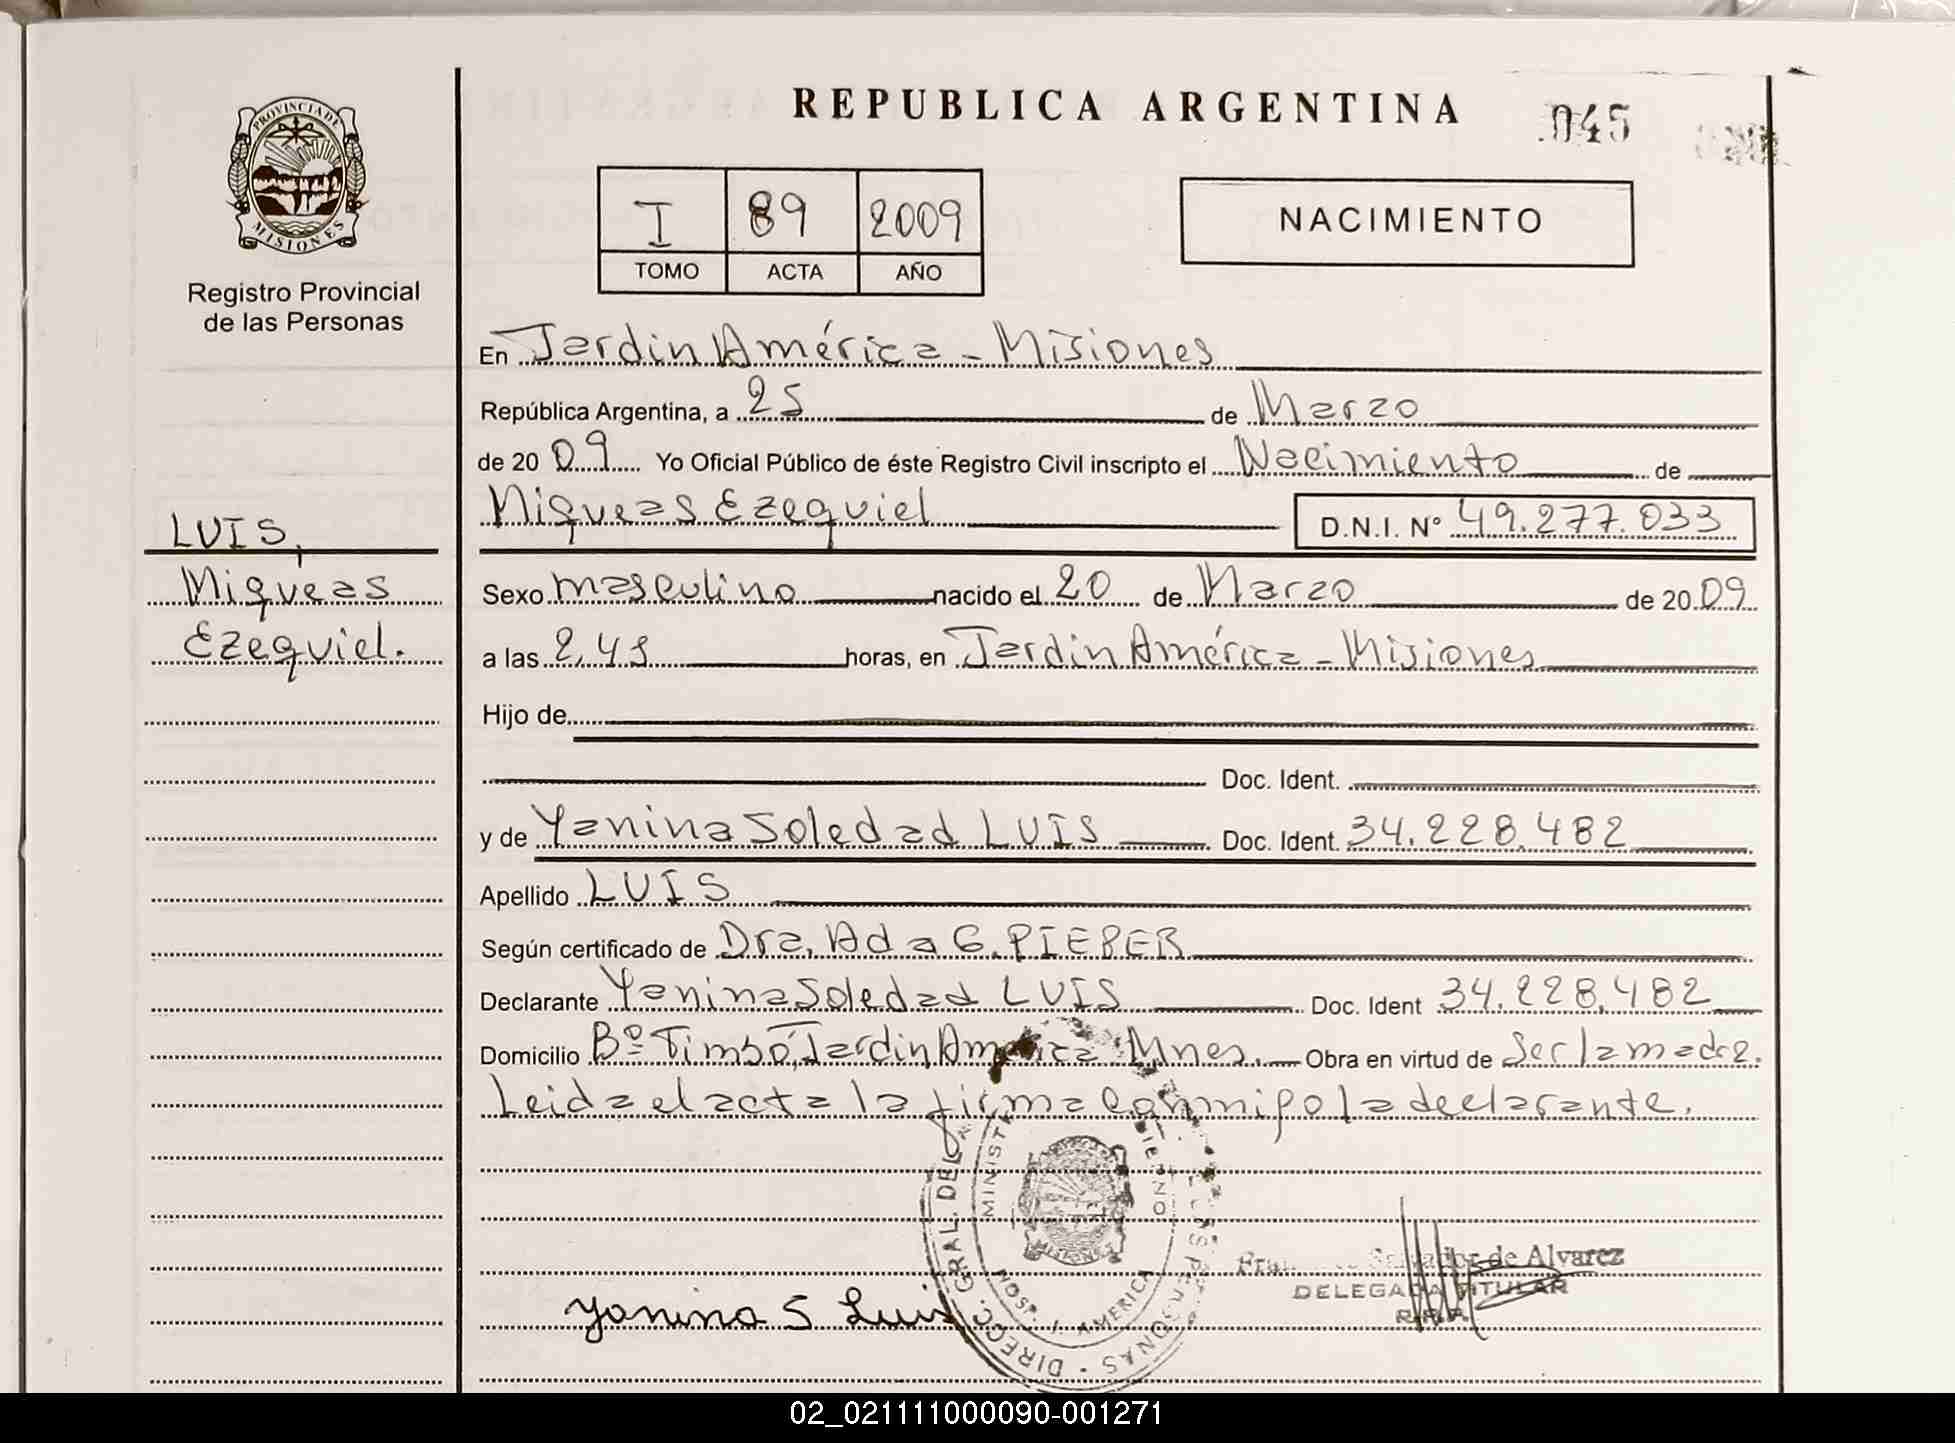 REPUBLICA ARGENTINA
045
PROVINCIA DE
MISIONES
Registro Provincial
de las Personas
I 89 2009
TOMO ACTA AÑO
NACIMIENTO
En Jardin América - Misiones
República Argentina, a 25 de Marzo
de 20 09 Yo Oficial Público de éste Registro Civil inscripto el Nacimiento de
Miqueas Ezequiel D.N.I. N° 49.277.033
LUIS,
Miqueas
Ezequiel.
Sexo masculino nacido el 20 de Marzo de 20 09
a las 2,45 horas, en Jardin América - Misiones
Hijo de
Doc. Ident.
y de Yanina Soledad LUIS Doc. Ident. 34.228.482
Apellido LUIS
Según certificado de Dra. Ada G.
Declarante Yanina Soledad LUIS Doc. Ident 34.228.482
Domicilio Bº Timbó, Jardin América Mnes. Obra en virtud de Ser la madre.
Leida el acta la firma conmigo la declarante.
DIRECC. GRAL. DEL PERSONAS
HOSP. J. AMERICA
MISIONES
Yanina S Luis
Salvador de Alvarez
DELEGADA TITULAR
R.P.P.
02_021111000090-001271